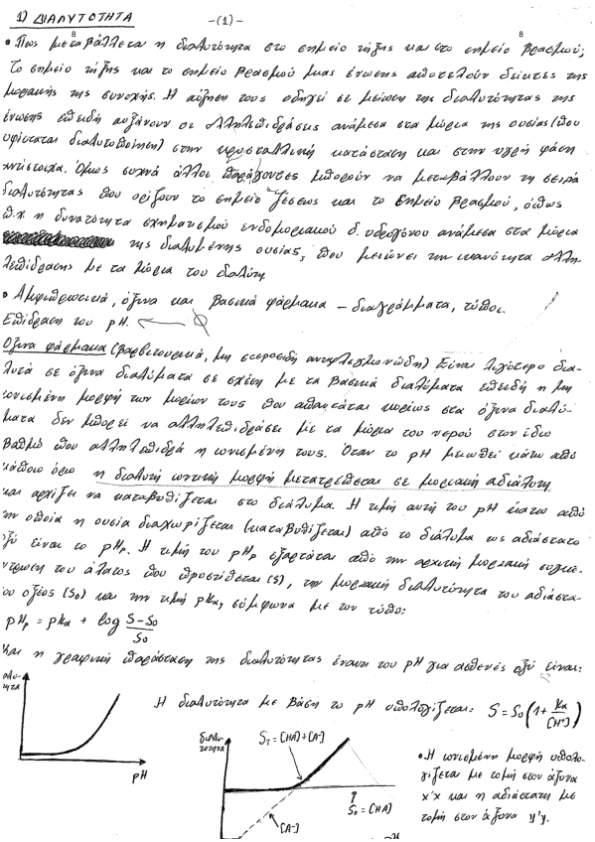 1) ΔΙΑΛΥΤΟΤΗΤΑ -(1)-
• Πως μεταβάλλεται η διαλυτότητα στο σημείο τήξης και στο σημείο βρασμού;
Το σημείο τήξης και το σημείο βρασμού μιας ένωσης αποτελούν δείκτες της
μοριακής της συνοχής. Η αύξηση τους οδηγεί σε μείωση της διαλυτότητας της
ένωσης επειδή αυξάνουν οι αλληλεπιδράσεις ανάμεσα στα μόρια της ουσίας (που
υφίσταται διαλυτοποίηση) στην κρυσταλλική κατάσταση και στην υγρή φάση
αντίστοιχα. Όμως συχνά άλλοι παράγοντες μπορούν να μεταβάλλουν τη σειρά
διαλυτότητας που ορίζουν το σημείο ζέσεως και το σημείο βρασμού, όπως
π.χ η δυνατότητα σχηματισμού ενδομοριακού δ. υδρογόνου ανάμεσα στα μόρια
της διαλυμένης ουσίας, που μειώνει την ικανότητα αλλη-
λεπίδρασης με τα μόρια του διαλύτη.
• Αμφιπρωτικά, όξινα και βασικά φάρμακα - διαγράμματα, τύποι.
Επίδραση του pH.
Όξινα φάρμακα (βαρβιτουρικά, μη στεροειδή αντιφλεγμονώδη) Είναι λιγότερο δια-
λυτά σε όξινα διαλύματα σε σχέση με τα βασικά διαλύματα επειδή η μη
ιονισμένη μορφή των μορίων τους που απαντάται κυρίως στα όξινα διαλύ-
ματα δεν μπορεί να αλληλεπιδράσει με τα μόρια του νερού στον ίδιο
βαθμό που αλληλεπιδρά η ιονισμένη τους. Όταν το pH μειωθεί κάτω από
κάποιο όριο η διαλυτή ιοντική μορφή μετατρέπεται σε μοριακή αδιάλυτη
και αρχίζει να καταβυθίζεται στο διάλυμα. Η τιμή αυτή του pH κάτω από
την οποία η ουσία διαχωρίζεται (καταβυθίζεται) από το διάλυμα ως αδιάστατο
οξύ είναι το pHp. Η τιμή του pHp εξαρτάται από την αρχική μοριακή συγκέ-
ντρωση του άλατος που προστίθεται (S), την μοριακή διαλυτότητα του αδιάστα-
ου οξέος (S₀) και την τιμή pKa, σύμφωνα με τον τύπο:
pHp = pKa + log S-S₀/S₀
Και η γραφική παράσταση της διαλυτότητας έναντι του pH για ασθενές οξύ είναι:
αλυ-
τητα
pH
Η διαλυτότητα με βάση το pH υπολογίζεται: S = S₀ (1 + Ka/[H⁺])
διαλυ-
τότητα
Sτ = [HA] + [A-]
S₀ = [HA]
[A-]
• Η ιονισμένη μορφή υπολο-
γίζεται με τομή στον άξονα
x'x και η αδιάστατη με
τομή στον άξονα y'y.